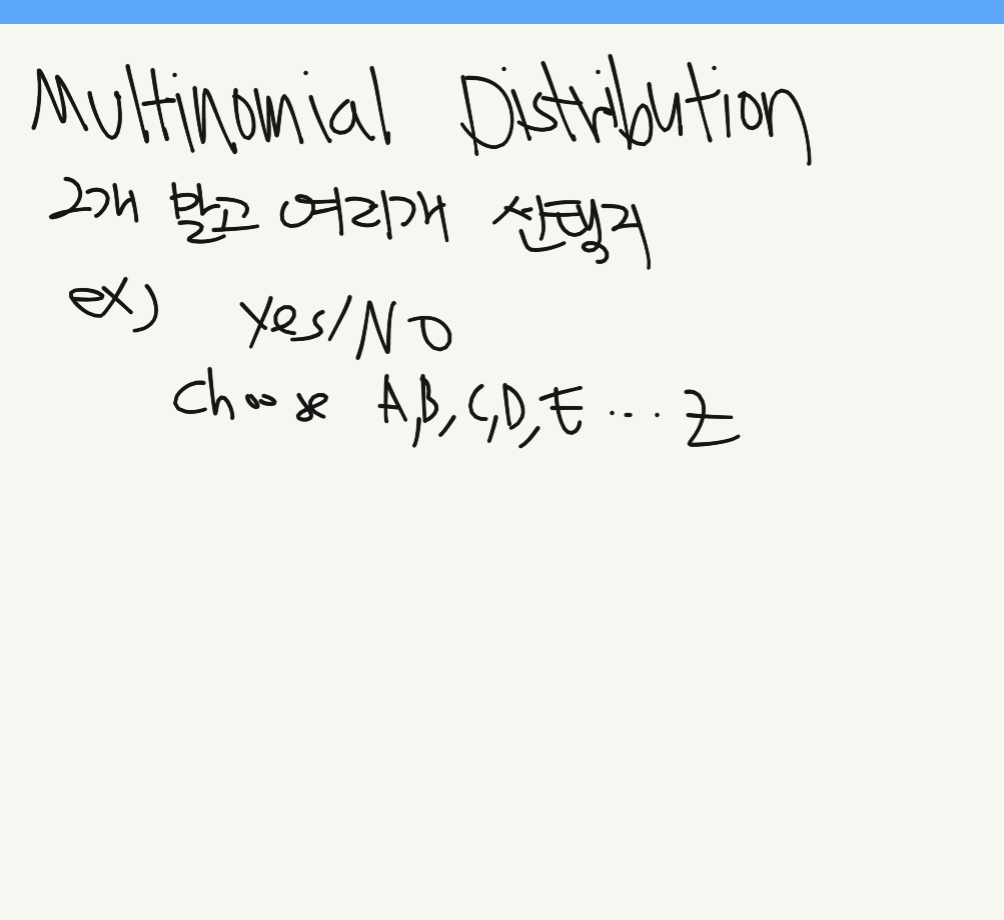 Multinomial Distribution
2개 말고 여러개 선택지
ex)
Yes/No
Choose A, B, C, D, E ... Z